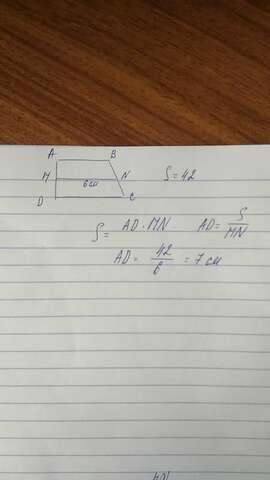 A B
M 6см N S=42
D C
S= AD·MN AD= S/MN
AD= 42/6 = 7 см